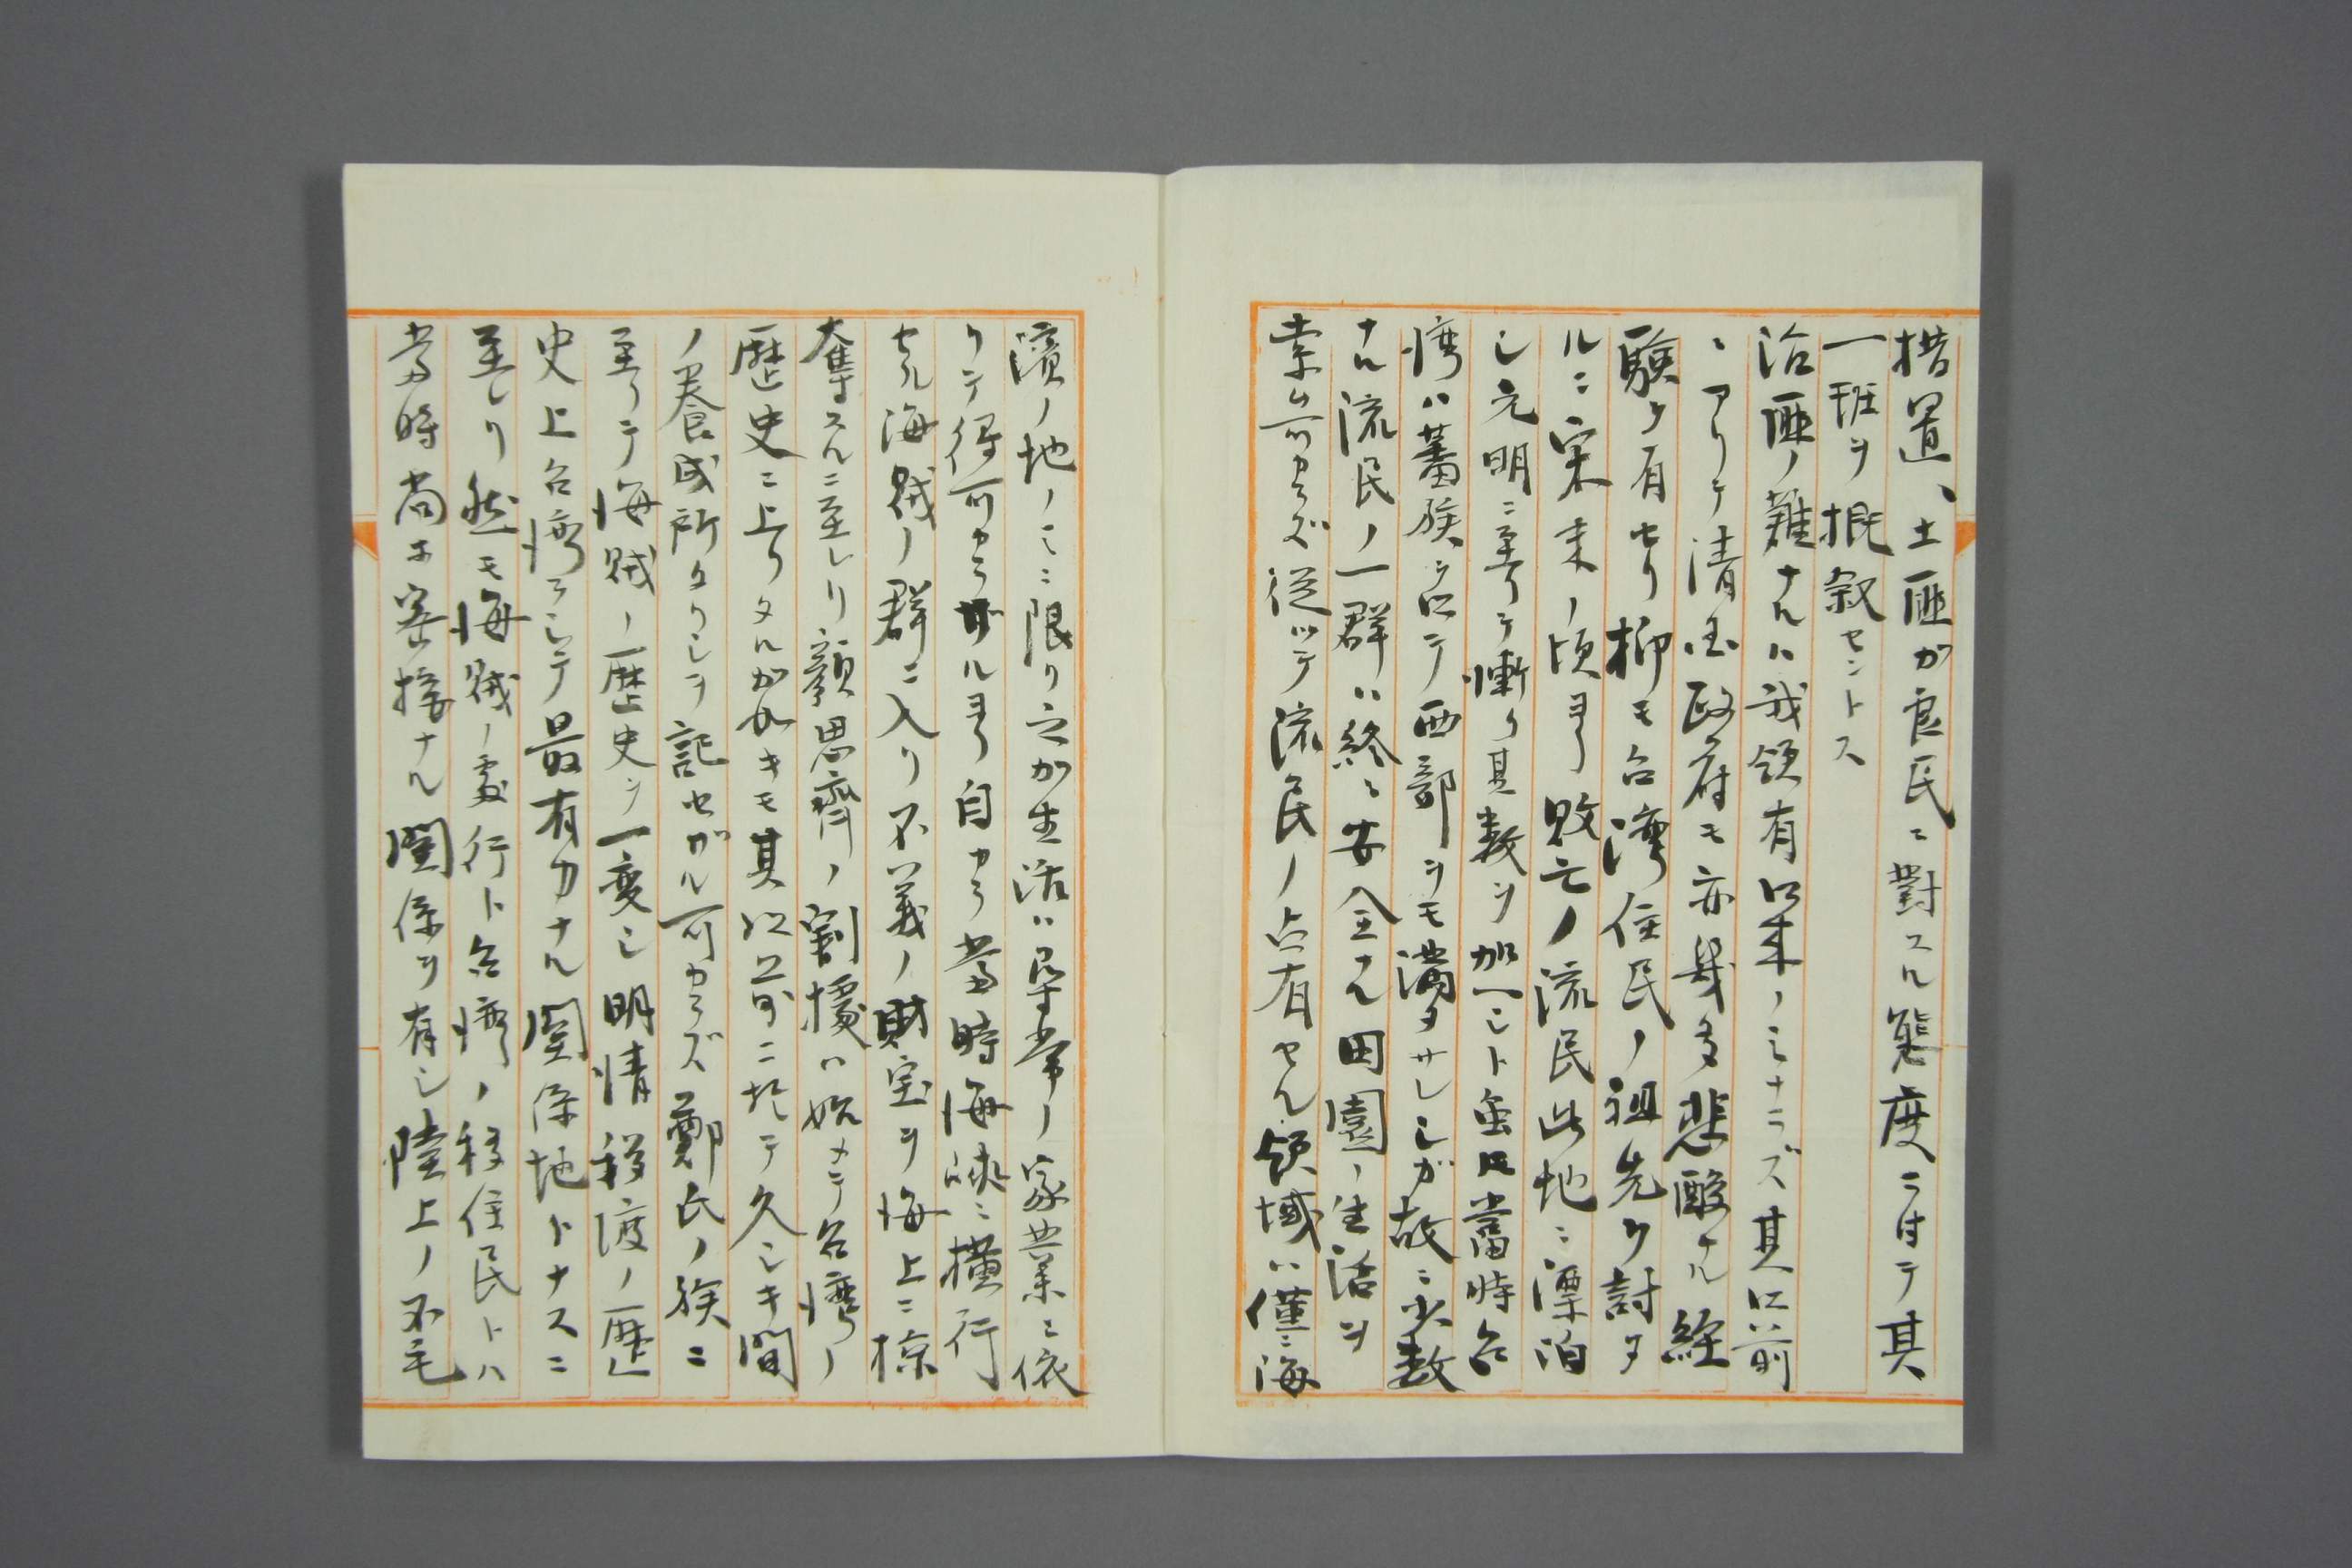 措置、土匪が良民ニ對スル態度ニ付テ其
一班ヲ概叙セントス
治匪ノ難ナルハ我領有以来ノミナラズ其以前
ニアリテ清国政府モ亦幾多悲酸ナル経
験ヲ有セリ抑モ台湾住民ノ祖先ヲ討ヌ
ルニ宋末ノ頃ヨリ敗亡ノ流民此地ニ漂泊
シ元明ニ至リテ漸ク其数ヲ加ヘシト虽𪜈當時台
湾ハ蕃族ニ占テ西部ヲモ満タサレシガ故ニ少数
ナル流民ノ一群ハ終ニ安全ナル田園ノ生活ヲ
営ム可カラズ従ッテ流民ノ占有セル領域ハ僅ニ海
濱ノ地ノミニ限リ之カ生活ハ尋常ノ家業ニ依
リテ得可カラザルヨリ自カラ當時海峡ニ横行
セル海賊ノ群ニ入リ不義ノ財宝ヲ海上ニ掠
奪スルニ至レリ顔思齊ノ割據ハ始メテ台湾ノ
歴史ニ上リタルが如キモ其以前ニ於テ久シキ間
ノ養成所タリシヲ記セザル可カラズ鄭氏ノ族ニ
至リテ海賊ノ歴史ヲ一変シ明清移渡ノ歴
史上台湾ヲシテ最有力ナル関係地トナスニ
至レリ然モ海賊ノ處行ト台湾ノ移住民トハ
當時尚ホ密接ナル関係ヲ有シ陸上ノ不毛